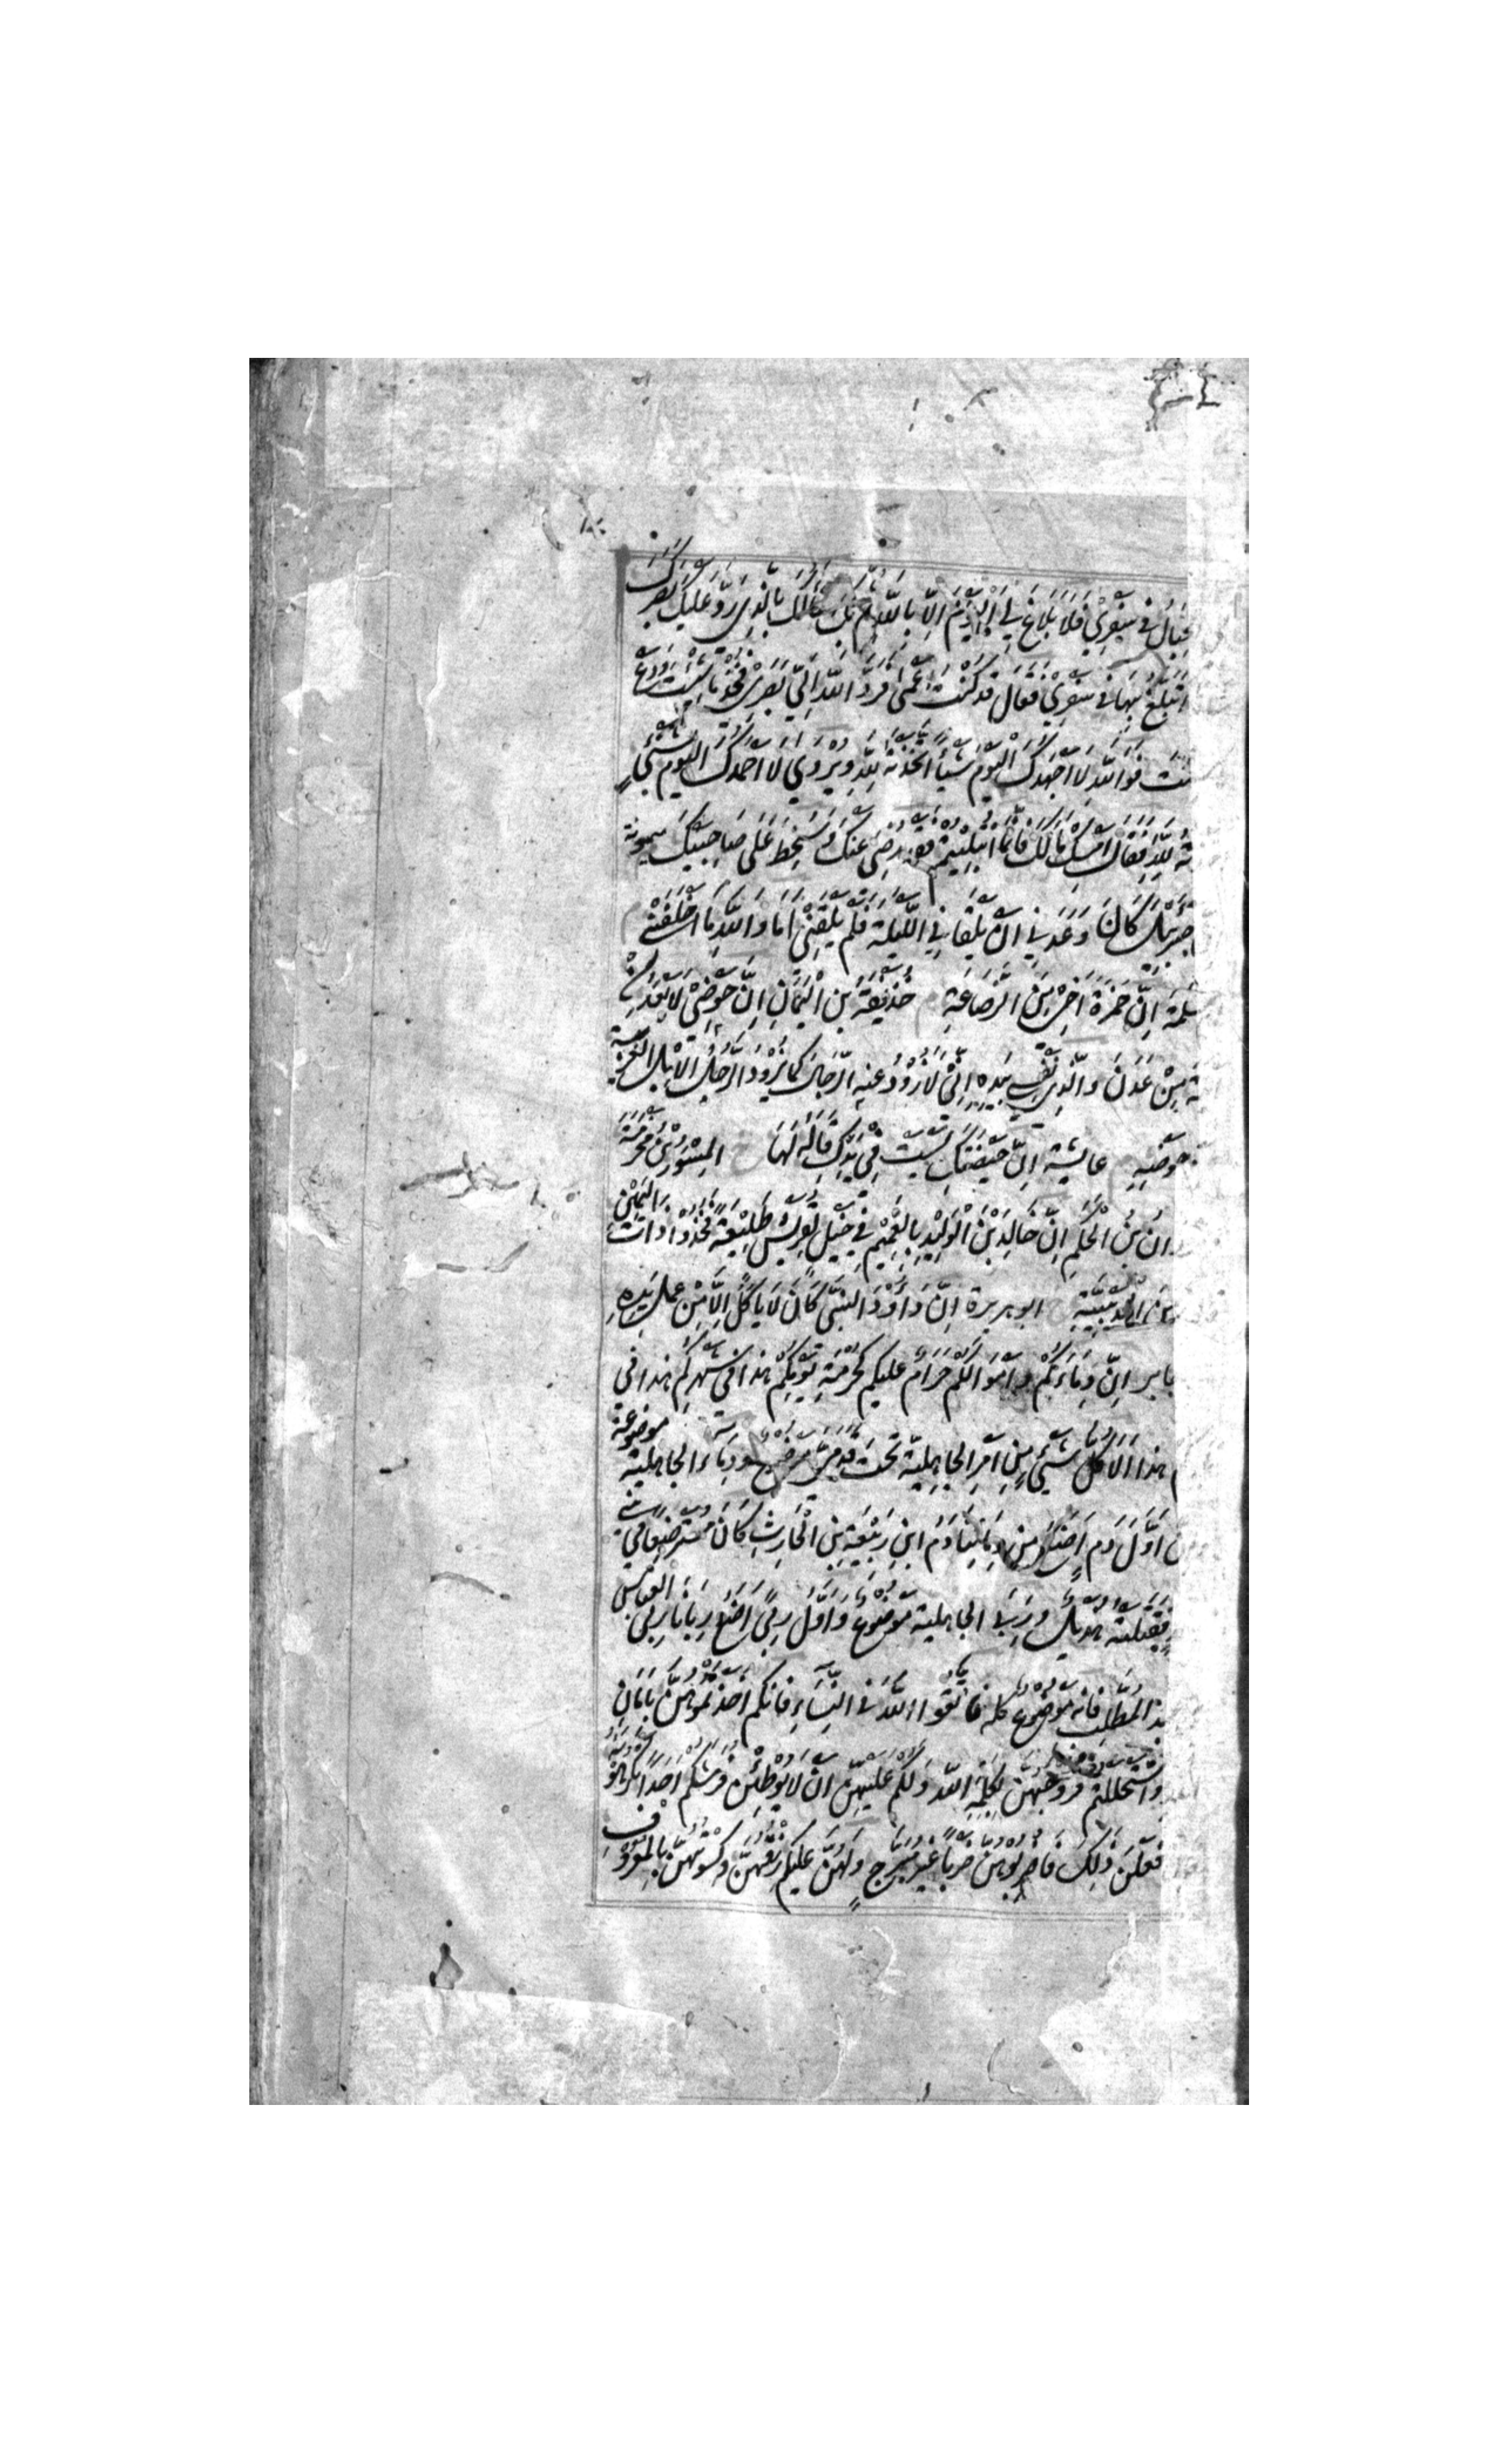 الحِبَالُ فِي سَفَرِي فَلَا بَلَاغَ لِيَ الْيَوْمَ اِلَّا بِاللّٰهِ ثُمَّ بِكَ اَسْاَلُكَ بِالَّذِي رَدَّ عَلَيْكَ بَصَرَكَ
اَتَبَلَّغُ بِهَا فِي سَفَرِي فَقَالَ قَدْ كُنْتُ اَعْمٰى فَرَدَّ اللّٰهُ اِلَيَّ بَصَرِي فَخُذْ مَا شِئْتَ وَدَعْ
شئتَ فَوَاللّٰهِ لَا اَجْهَدُكَ الْيَوْمَ شَيْئًا اَخَذْتَهُ لِلّٰهِ وَيُرْوٰى لَا اَحْمَدُكَ الْيَوْمَ بِشَيْءٍ
تَهُ لِلّٰهِ فَقَالَ اَمْسِكْ مَالَكَ فَاِنَّمَا ابْتُلِيتُمْ فَقَدْ رُضِيَ عَنْكَ وَسُخِطَ عَلٰى صَاحِبَيْكَ ميمونة
جِبْرِيلَ كَانَ وَعَدَنِي اَنْ يَلْقَانِي اللَّيْلَةَ فَلَمْ يَلْقَنِي اَمَا وَاللّٰهِ مَا اَخْلَفَنِي م
سَلَمَة اِنَّ حَمْزَةَ اَخِي مِنَ الرَّضَاعَةِ م حُذَيْفَةُ بْنُ الْيَمَانِ اِنَّ حَوْضِي لَاَبْعَدُ مِنْ
ةَ مِنْ عَدَنَ وَالَّذِي نَفْسِي بِيَدِهِ اِنِّي لَاَذُوْدُ عَنْهُ الرِّجَالَ كَمَا يَذُوْدُ الرَّجُلُ الْاِبِلَ الغريبة
حَوْضِهِ عايشة اِنَّ حَيْضَتَكِ لَيْسَتْ فِي يَدِكِ قَالَهُ لَهَا خ المِسْوَرُ بْنُ مَخْرَمَةَ
وان بْنُ الْحَكَمِ اِنَّ خَالِدَ بْنَ الْوَلِيدِ بِالْغَمِيْمِ فِي خَيْلٍ لِقُرَيْشٍ طَلِيْعَةً فَخُذُوا ذَاتَ الْيَمِيْنِ
مَنَ الْحُدَيْبِيَّةِ خ ابو هريرة اِنَّ دَاوُوْدَ النَّبِيَّ كَانَ لَا يَاْكُلُ اِلَّا مِنْ عَمَلِ يَدِهِ
جابر اِنَّ دِمَاءَكُمْ وَاَمْوَالَكُمْ حَرَامٌ عليكم كَحُرْمَةِ يَوْمِكُمْ هذا في شَهْرِكُمْ هذا في
م هذا اَلَا كُلُّ شَيْءٍ مِنْ اَمْرِ الجاهلية تَحْتَ قَدَمَيَّ مَوْضُوْعٌ وَدِمَاءُ الجاهلية موضوعة
اِنَّ اَوَّلَ دَمٍ اَضَعُ مِنْ دِمَائِنَا دَمُ ابْنِ رَبِيْعَةَ بْنِ الْحَارِثِ كَانَ مُسْتَرْضَعًا فِي بَنِي
فَقَتَلَتْهُ هُذَيْلٌ وَرِبَا الجاهلية مَوْضُوْعٌ وَاَوَّلُ رِبًا اَضَعُ رِبَانَا رِبٰى العباس
بد الْمُطَّلِبِ فَاِنَّهُ مَوْضُوْعٌ كله فَاتَّقُوا اللّٰهَ فِي النِّسَاءِ فَاِنَّكُمْ اَخَذْتُمُوْهُنَّ بِاَمَانِ
وَاسْتَحْلَلْتُمْ فُرُوْجَهُنَّ بِكَلِمَةِ اللّٰهِ وَلَكُمْ عَلَيْهِنَّ اَنْ لَا يُوْطِئْنَ فُرُشَكُمْ اَحَدًا تَكْرَهُوْنَهُ
فَعَلْنَ ذٰلِكَ فَاضْرِبُوْهُنَّ ضَرْبًا غَيْرَ مُبَرِّحٍ وَلَهُنَّ عَلَيْكُمْ رِزْقُهُنَّ وَكِسْوَتُهُنَّ بِالْمَعْرُوْفِ